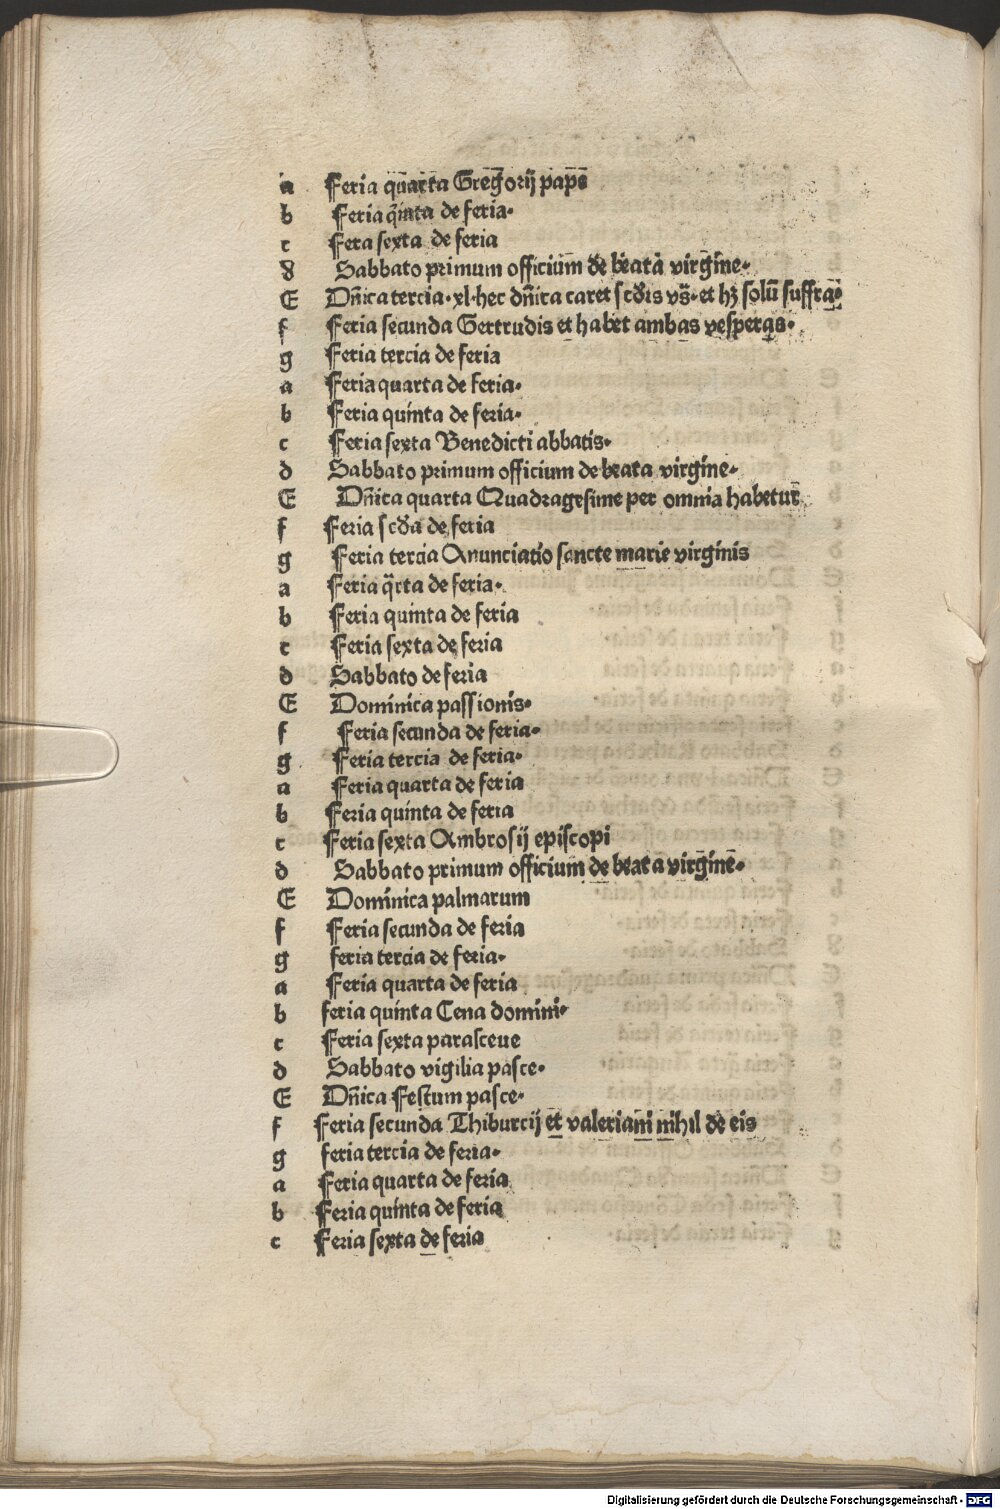 a Feria quarta Gregorij pape
b Feria q̃inta de feria.
c Fera sexta de feria
d Sabbato primum officium de beata virgine.
E Dñica tercia. xl. hec dñica caret scd̃is vs̃. et hʒ solũ suffra.
f Feria secunda Gertrudis et habet ambas vesperas.
g Feria tercia de feria
a Feria quarta de feria.
b Feria quinta de feria.
c Feria sexta Benedicti abbatis.
d Sabbato primum officium de beata virgine.
E Dñica quarta Quadragesime per omnia habetur
f Feria scd̃a de feria
g Feria tercia Anunciatio sancte marie virginis
a Feria q̃rta de feria.
b Feria quinta de feria
c Feria sexta de feria
d Sabbato de feria
E Dominica passionis.
f Feria secunda de feria.
g Feria tercia de feria.
a Feria quarta de feria
b Feria quinta de feria
c Feria sexta Ambrosij episcopi
d Sabbato primum officium de beata virgine.
E Dominica palmarum
f Feria secunda de feria
g feria tercia de feria.
a Feria quarta de feria
b feria quinta Cena domini.
c Feria sexta parasceue
d Sabbato vigilia pasce.
E Dñica Festum pasce.
f Feria secunda Thiburcij et valeriani nihil de eis
g feria tercia de feria.
a Feria quarta de feria
b Feria quinta de feria
c Feria sexta de feria
Digitalisierung gefördert durch die Deutsche Forschungsgemeinschaft - DFG